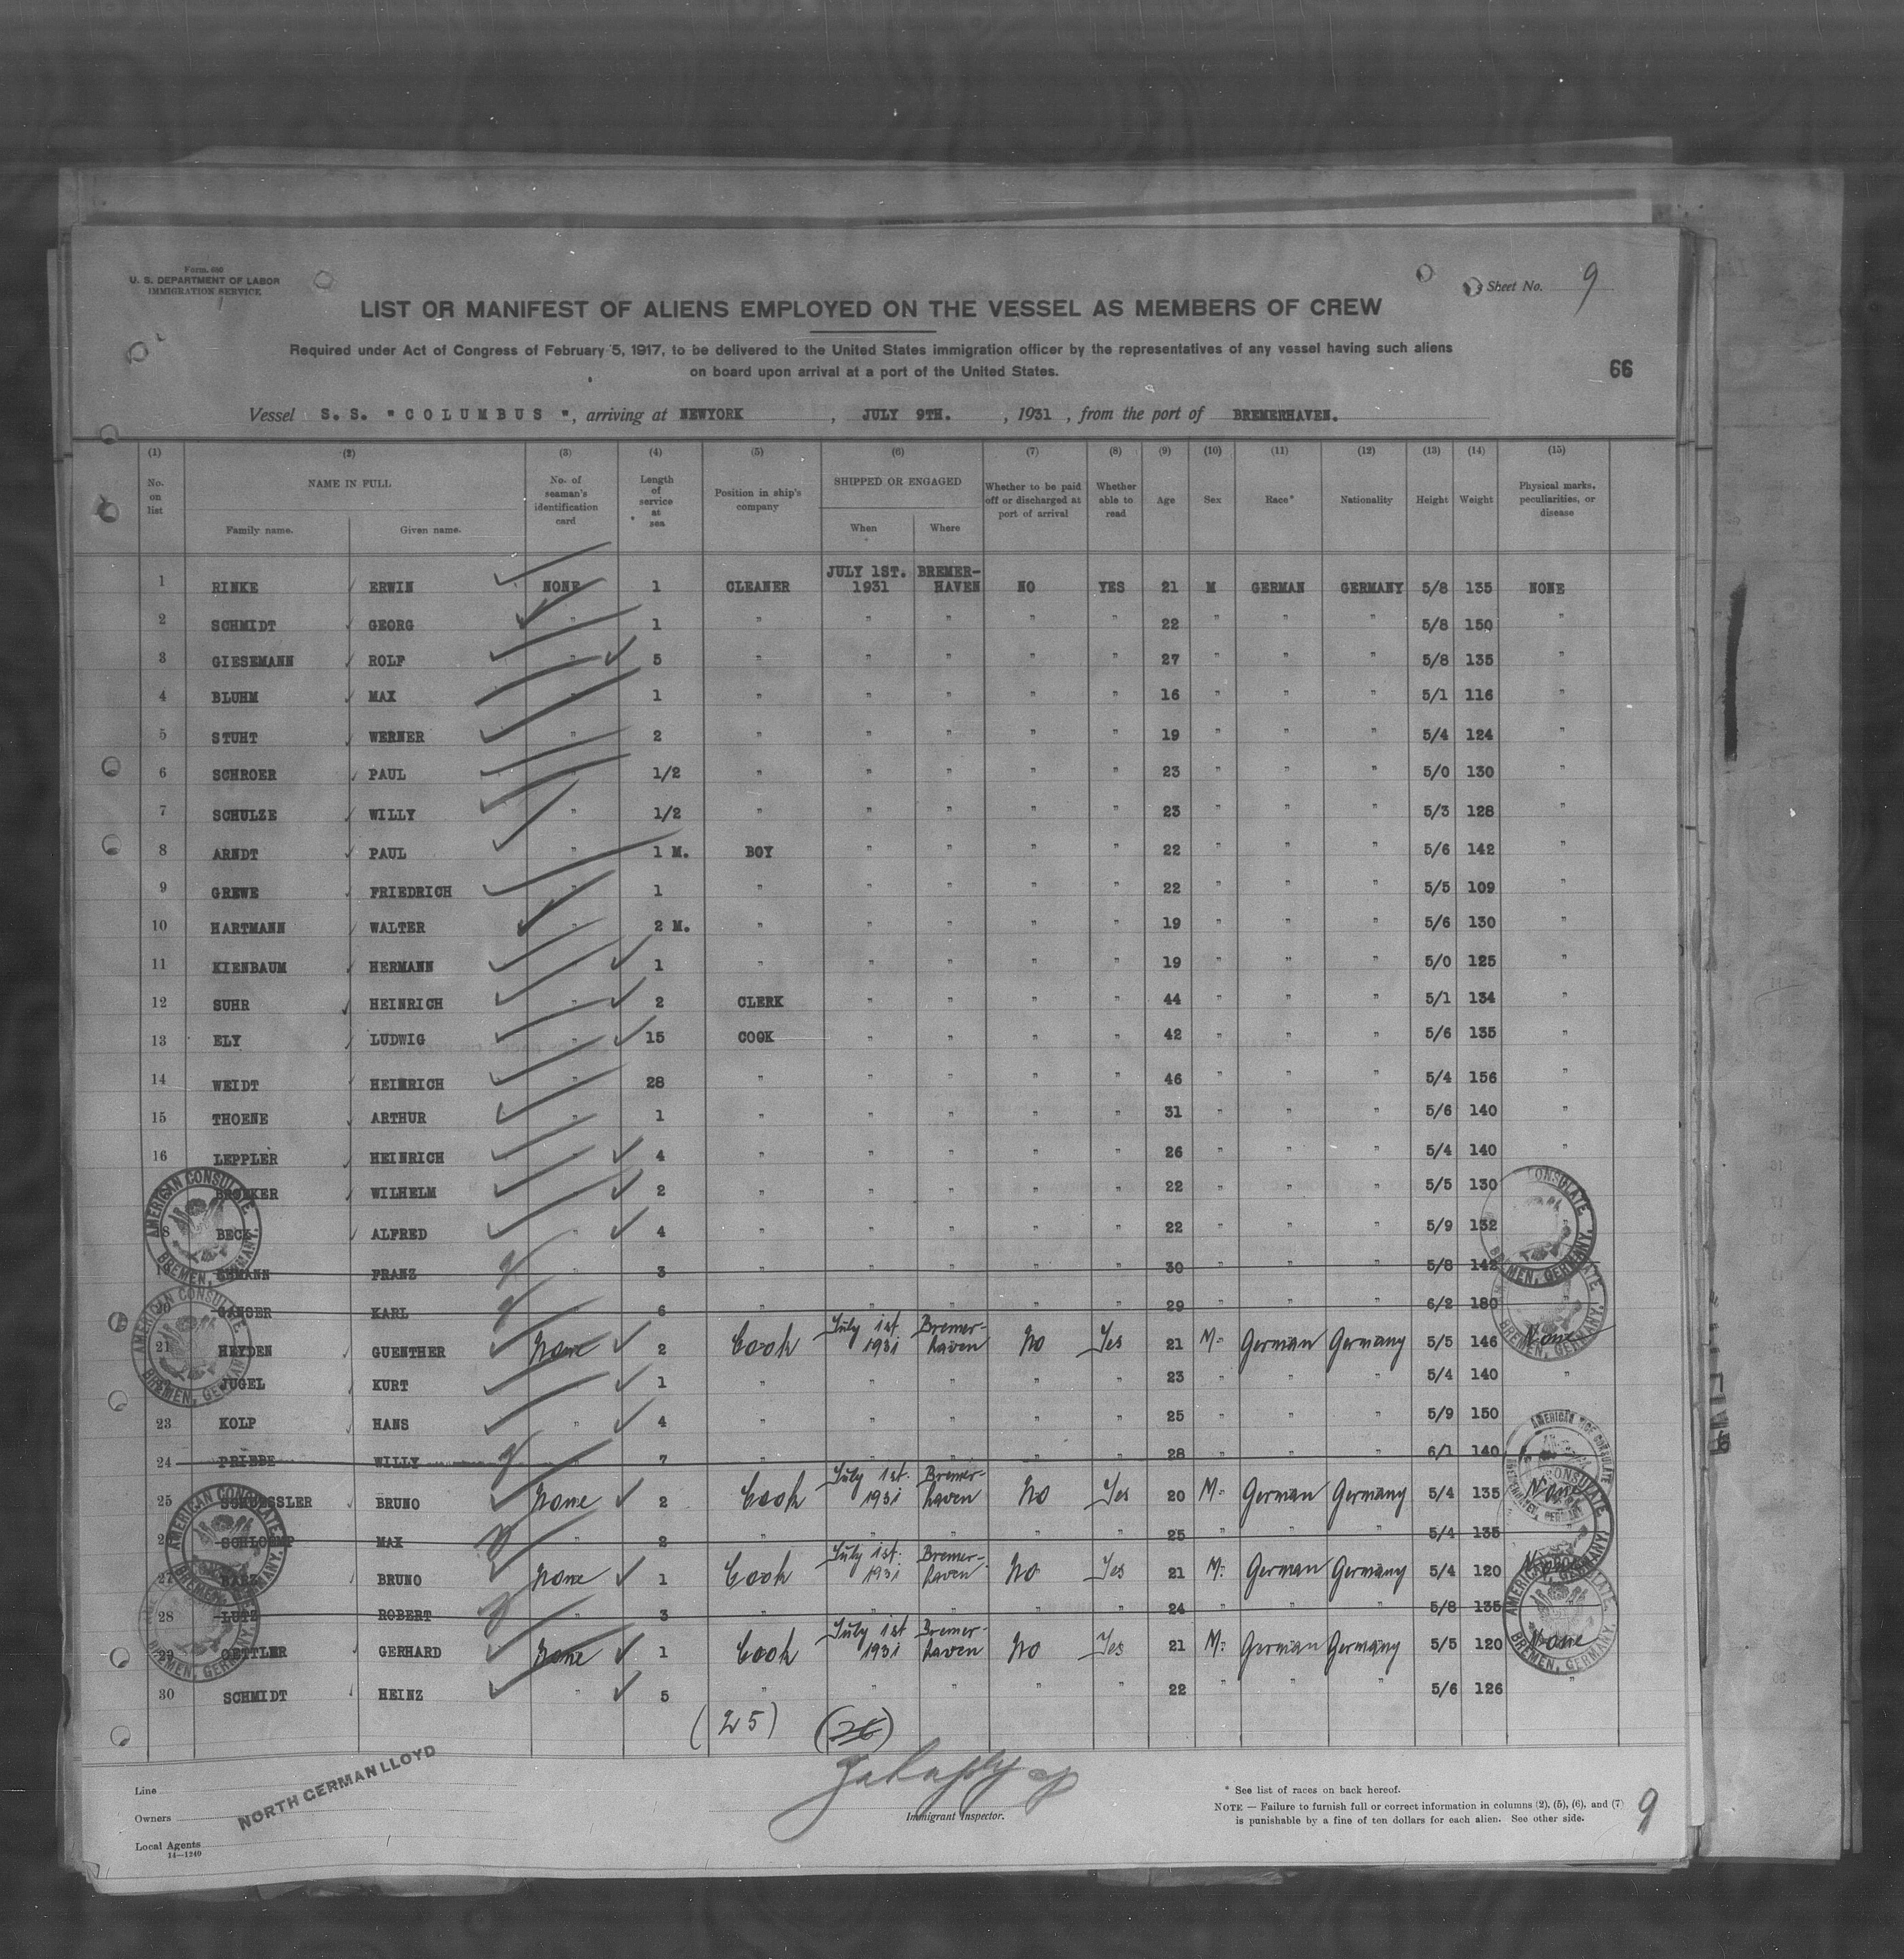 Form 680
U. S. DEPARTMENT OF LABOR
IMMIGRATION SERVICE
Sheet No. 9
LIST OR MANIFEST OF ALIENS EMPLOYED ON THE VESSEL AS MEMBERS OF CREW
Required under Act of Congress of February 5, 1917, to be delivered to the United States immigration officer by the representatives of any vessel having such aliens
on board upon arrival at a port of the United States.
66
Vessel S. S. "COLUMBUS", arriving at NEWYORK, JULY 9TH., 1931, from the port of BREMERHAVEN.
(1) (2) (3) (4) (5) (6) (7) (8) (9) (10) (11) (12) (13) (14) (15)
No. on list NAME IN FULL Family name. Given name. No. of seaman's identification card Length of service at sea Position in ship's company SHIPPED OR ENGAGED When Where Whether to be paid off or discharged at port of arrival Whether able to read Age Sex Race* Nationality Height Weight Physical marks, peculiarities, or disease
1 RINKE ERWIN NONE 1 CLEANER JULY 1ST. 1931 BREMER-HAVEN NO YES 21 M GERMAN GERMANY 5/8 135 NONE
2 SCHMIDT GEORG 1 " " " " " 22 " " " 5/8 150 "
3 GIESEMANN ROLF " 5 " " " " " 27 " " " 5/8 135 "
4 BLUHM MAX " 1 " " " " " 16 " " " 5/1 116 "
5 STUHT WERNER " 2 " " " " " 19 " " " 5/4 124 "
6 SCHROER PAUL " 1/2 " " " " " 23 " " " 5/0 130 "
7 SCHULZE WILLY " 1/2 " " " " " 23 " " " 5/3 128 "
8 ARNDT PAUL " 1 M. BOY " " " " 22 " " " 5/6 142 "
9 GREWE FRIEDRICH " 1 " " " " " 22 " " " 5/5 109 "
10 HARTMANN WALTER " 2 M. " " " " " 19 " " " 5/6 130 "
11 KIENBAUM HERMANN " 1 " " " " " 19 " " " 5/0 125 "
12 SUHR HEINRICH " 2 CLERK " " " " 44 " " " 5/1 134 "
13 ELY LUDWIG " 15 COOK " " " " 42 " " " 5/6 135 "
14 WEIDT HEINRICH " 28 " " " " " 46 " " " 5/4 156 "
15 THOENE ARTHUR " 1 " " " " " 31 " " " 5/6 140 "
16 LEPPLER HEINRICH " 4 " " " " " 26 " " " 5/4 140 "
BROEKER WILHELM " 2 " " " " " 22 " " " 5/5 130
8 BECK ALFRED " 4 " " " " " 22 " " " 5/9 132
FRANZ " 3 " " " " " 30 " " " 5/8 142
20 GANSER KARL 6 " " " " " 29 " " " 6/2 180
21 HEYDEN GUENTHER None 2 Cook July 1st. 1931 Bremer-haven No Yes 21 M. German Germany 5/5 146 None
JUGEL KURT 1 " " " " " 23 " " " 5/4 140 "
23 KOLP HANS " 4 " " " " " 25 " " " 5/9 150
24 PRIEBE WILLY " 7 " " " " " 28 " " " 6/1 140
25 BRUNO None 2 Cook July 1st. 1931 Bremer-haven No Yes 20 M. German Germany 5/4 135 None
MAX " 2 " " " " " 25 " " " 5/4 135
BRUNO None 1 Cook July 1st. 1931 Bremer-haven No Yes 21 M. German Germany 5/4 120 None
28 LUTZ ROBERT " 3 " " " " " 24 " " " 5/8 135
29 OETTLER GERHARD None 1 Cook July 1st 1931 Bremer-haven No Yes 21 M. German Germany 5/5 120 None
30 SCHMIDT HEINZ " 5 " " " " " 22 " " " 5/6 126 "
(25) (26)
AMERICAN CONSULATE, BREMEN, GERMANY.
AMERICAN CONSULATE, BREMEN, GERMANY.
AMERICAN CONSULATE, BREMEN, GERMANY.
AMERICAN CONSULATE, BREMEN, GERMANY.
AMERICAN VICE CONSULATE
Line
Owners
Local Agents
14—1240
NORTH GERMAN LLOYD
Immigrant Inspector.
* See list of races on back hereof.
NOTE — Failure to furnish full or correct information in columns (2), (5), (6), and (7)
is punishable by a fine of ten dollars for each alien. See other side.
9